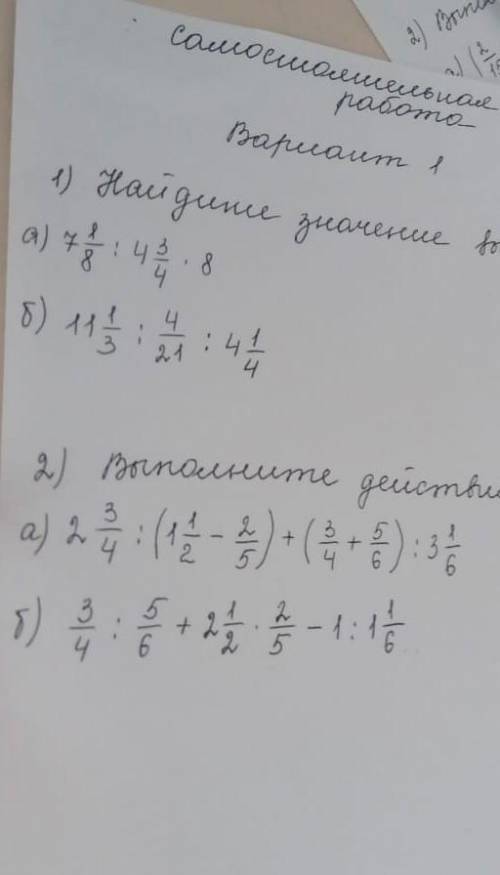 Самостоятельная
работа
Вариант 1
1) Найдите значение вы
а) 7 1/8 : 4 3/4 · 8
б) 11 1/3 : 4/21 : 4 1/4
2) Выполните действи
а) 2 3/4 : (1 1/2 - 2/5) + (3/4 + 5/6) : 3 1/6
б) 3/4 : 5/6 + 2 1/2 · 2/5 - 1 : 1 1/6
2) Выполн
а) (2/15